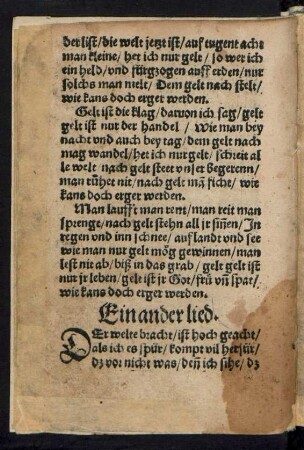 der list/die welt jetzt ist/auf tugent acht
man kleine/ het ich nur gelt/ so wer ich
ein held/ vnd fürgzogen auff erden/nur
solchs man melt/ Dem gelt nach stelt/
wie kans doch erger werden.
Gelt ist die klag/ daruon ich sag/gelt
gelt ist nur der handel/ Wie man bey
nacht vnd auch bey tag/ dem gelt nach
mag wandel/ het ich nur gelt/ schreit al
le welt nach gelt steet vnser begerenn/
man rühet nit/nach gelt mā ficht/ wie
kans doch erger werden.
Man laufft man rent/man reit man
sprengt/nach gelt stehn all jr sinen/In
regen vnd inn schnee/ auf landt vnd see
wie man nur gelt mög gewinnen/ man
lest nit ab/biß in das grab/ gelt gelt ist
nur jr leben/ gelt ist jr Got/ frü vn̄ spat/
wie kans doch erger werden.
Ein ander lied.
DEr welte bracht/ist hoch geacht/
als ich es spür/ kompt vil herfür/
dz vor nicht was/ den̄ ich sihe/ dz